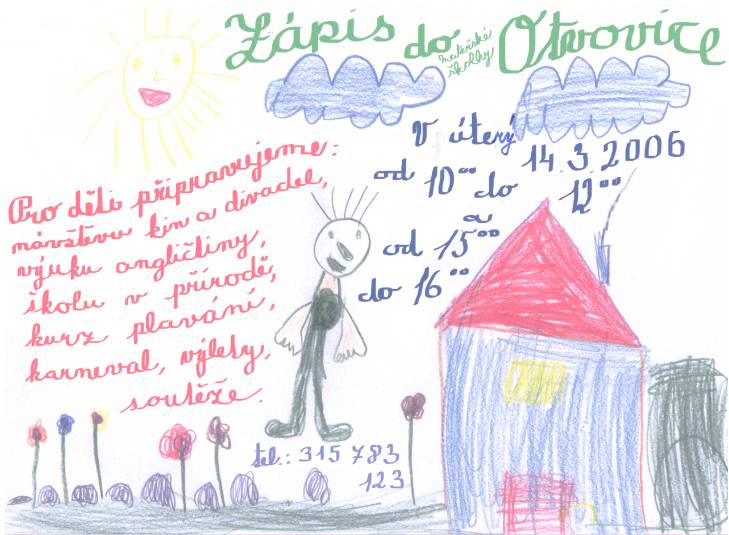 Zápis do mateřské školky Otvovice
V úterý 14.3.2006
od 10⁰⁰ do 12⁰⁰
a
od 15⁰⁰
do 16⁰⁰
Pro děti připravujeme:
návštěvu kin a divadel,
výuku angličtiny,
školu v přírodě,
kurz plavání,
karneval, výlety,
soutěže.
tel.: 315 783
123